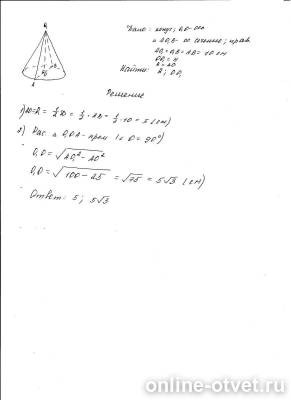 Дано: конус, O₁O - ось
△ AO₁B - ос. сечение; прав.
AO₁ = O₁B = AB = 10 см
OO₁ = H
R = AO
Найти: R; OO₁
Решение
1) AO = R = ½ AB = ½ · 10 = 5 (см)
2) Рас. △ O₁OA - прям. (∠O = 90°)
O₁O = √AO₁² - AO²
O₁O = √100 - 25 = √75 = 5√3 (см)
Ответ: 5; 5√3
online-otvet.ru